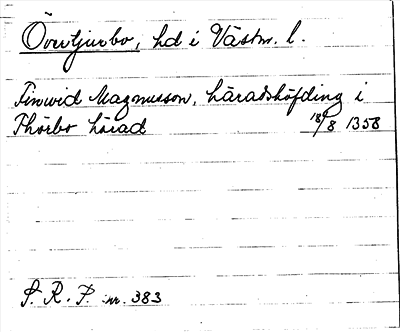 Övertjurbo, hd i Västm. l.
Finvid Magnusson, häradshöfding i
Thörbo härad 18/8 1358
S. R. P. nr. 383